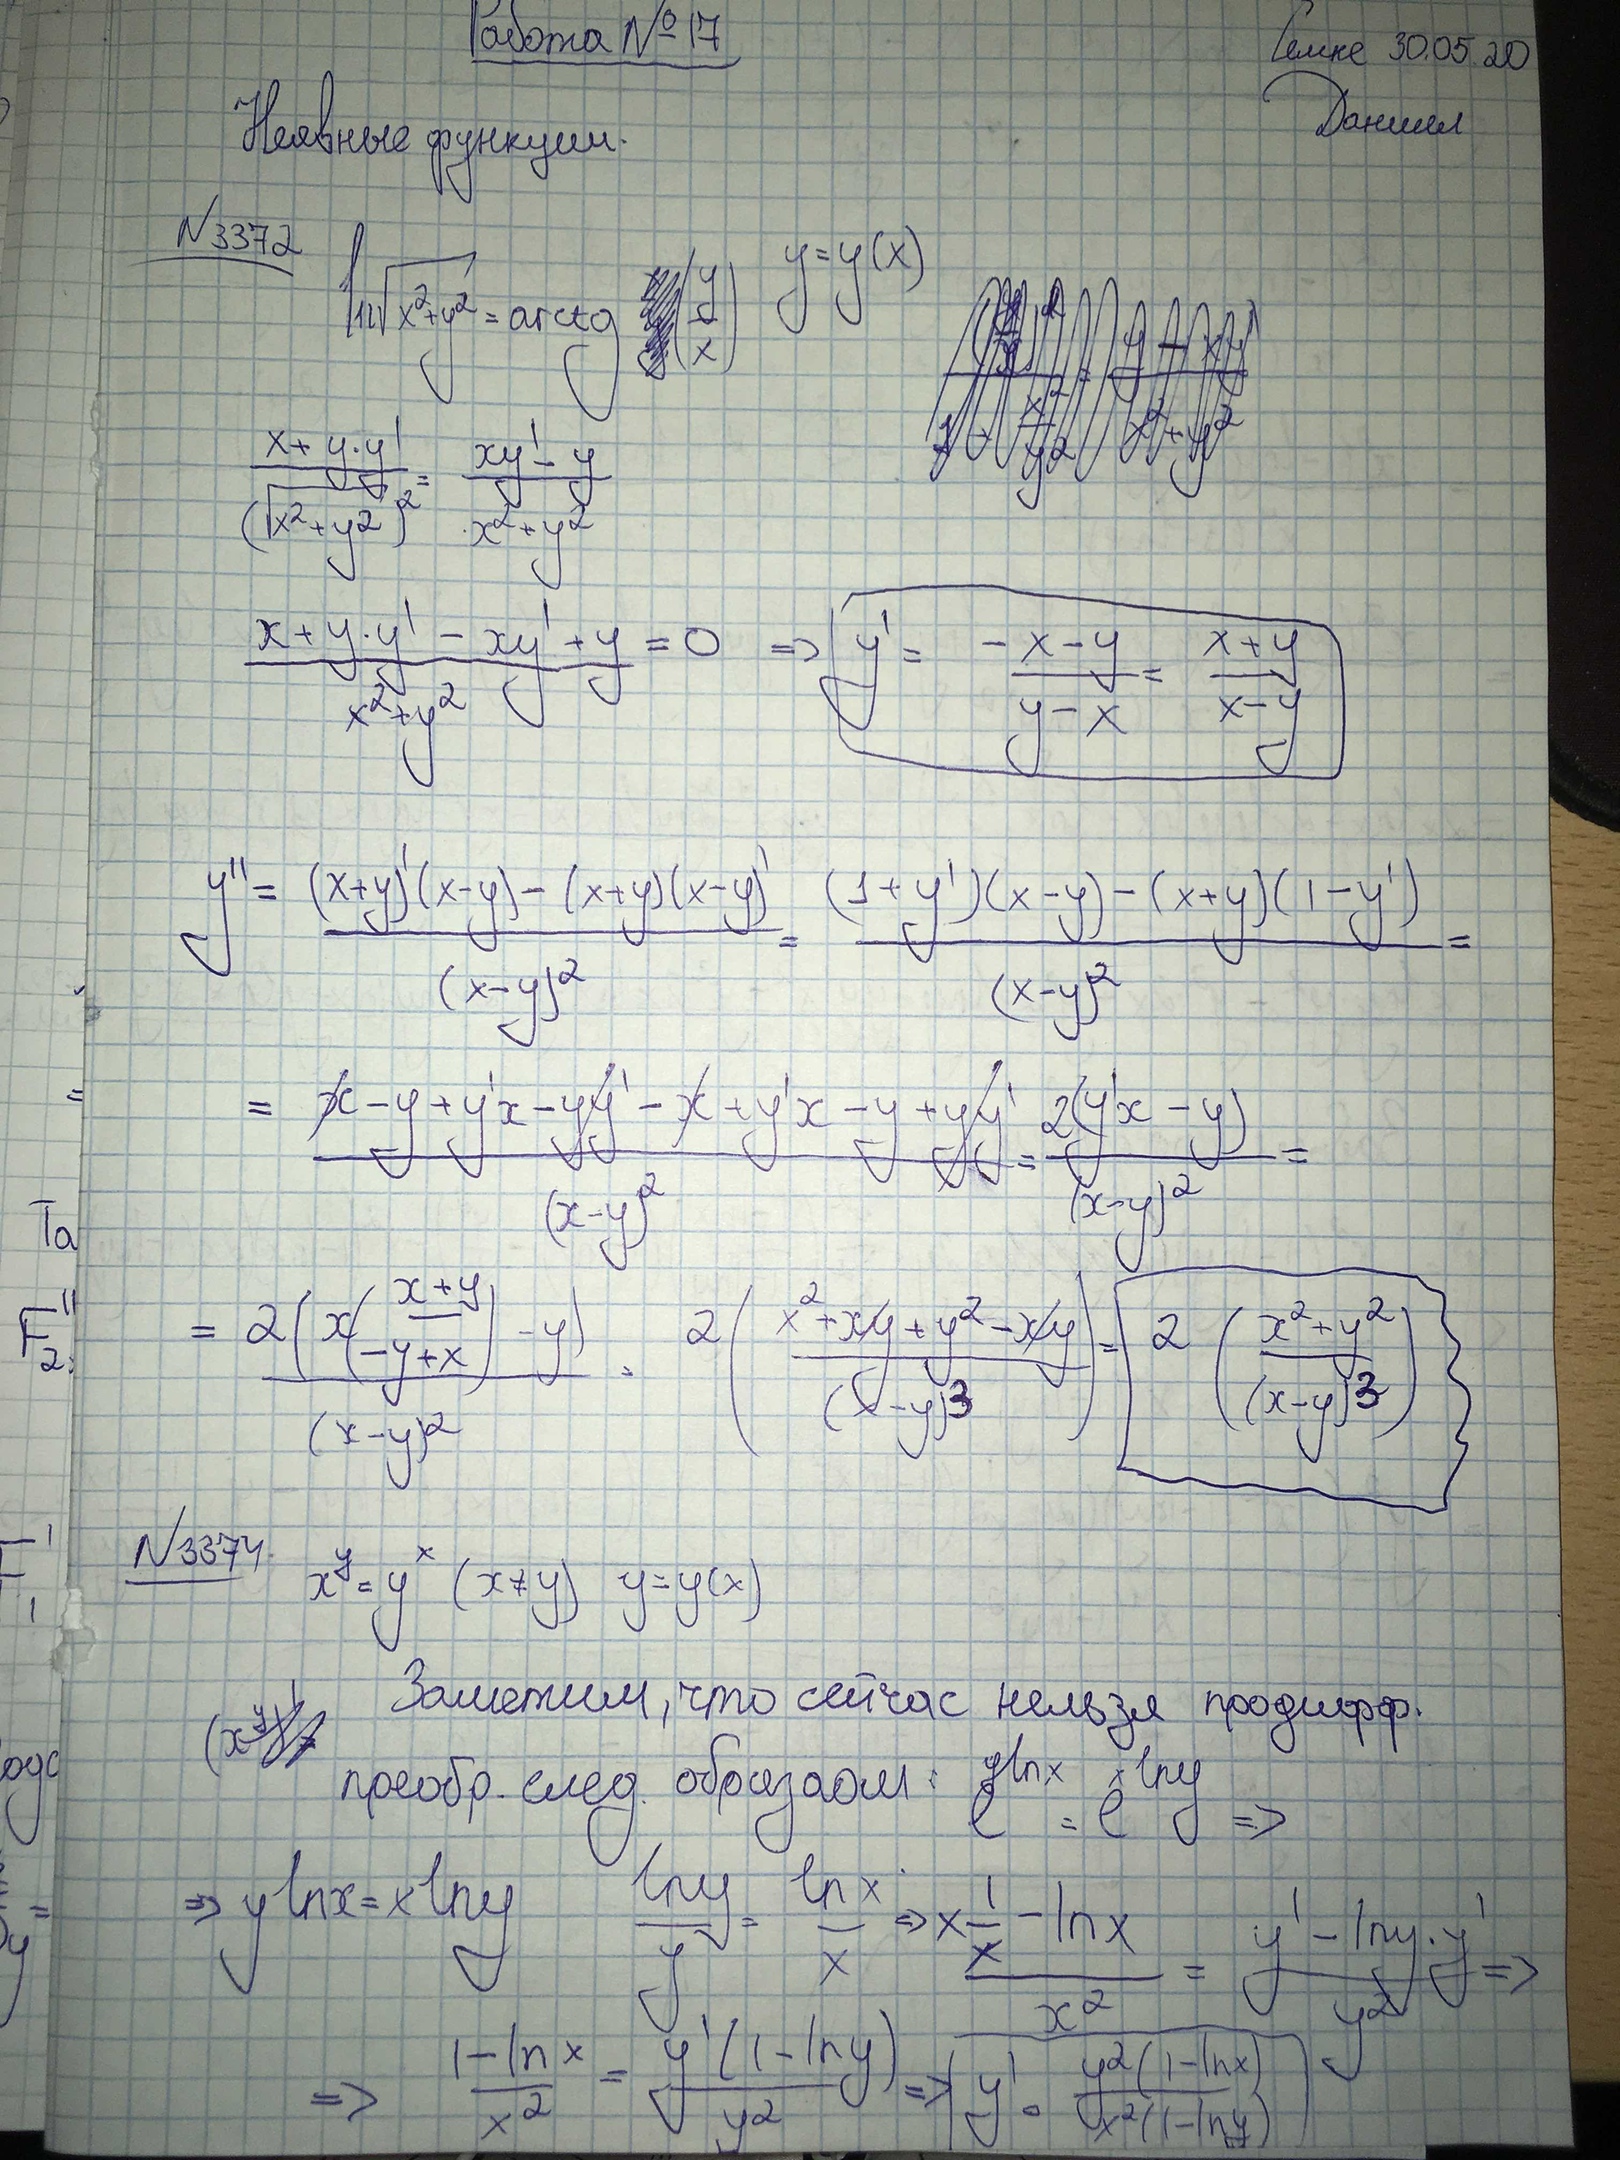 Работа № 17
30.05.20
Даниил
Неявные функции.
N3372
ln√(x²+y²) = arctg (y/x) y=y(x)
(x+y·y')/(√(x²+y²))² = (xy'-y)/(x²+y²)
(x+y·y' - xy'+y)/(x²+y²) = 0 => y' = (-x-y)/(y-x) = (x+y)/(x-y)
y'' = ((x+y)'(x-y) - (x+y)(x-y)')/(x-y)² = ((1+y')(x-y) - (x+y)(1-y'))/(x-y)² =
= (x-y+y'x-yy'-x+y'x-y+yy')/(x-y)² = 2(y'x-y)/(x-y)² =
= 2(x((x+y)/(-y+x))-y)/(x-y)² = 2((x²+xy+y²-xy)/(x-y)3) = 2((x²+y²)/(x-y)3)
N3374.
x^y = y^x (x≠y) y=y(x)
(x^y)' Заметим, что сейчас нельзя продифф.
преобр. след. образаом: e^(ylnx) = e^(xlny) =>
=> ylnx = xlny lny/y = lnx/x => (x 1/x - lnx)/x² = (y' - lny·y')/y² =>
=> (1-lnx)/x² = y'(1-lny)/y² => y' = y²(1-lnx)/x²(1-lny)
Та
F₂''
F₁'